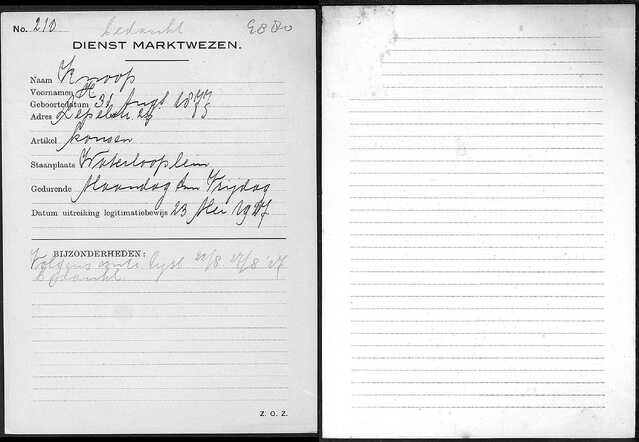 No. 210 bedankt
DIENST MARKTWEZEN.
Naam Knoop
Voornamen H
Geboortedatum 31 Augs 1877
Adres Lepelstr 29
Artikel kousen
Staanplaats Waterlooplein
Gedurende Maandag t/m Vrijdag
Datum uitreiking legitimatiebewijs 23 Mei 1927
BIJZONDERHEDEN:
Volgens lyst 22/8 27/8 '27
Bedankt
Z. O. Z.